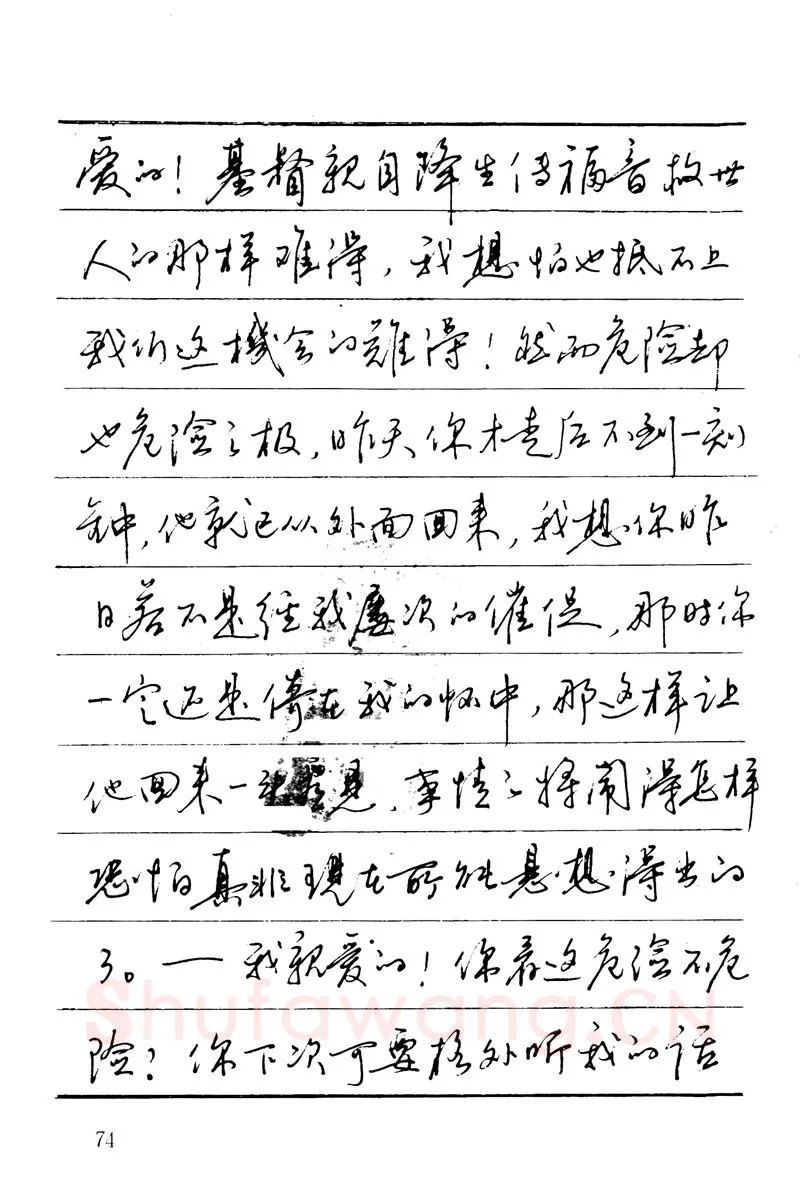 爱的！基督親自降生传福音救世
人的那样难得，我想怕也抵不上
我们这機会的難得！然而危险却
也危险之极，昨天你才走后不到一刻
钟，他就已从外面回来，我想你昨
日若不是经我屡次的催促，那时你
一定还是倚在我的怀中，那这样让
他回来一 見，事情之将闹得怎样
恐怕真非現在所能悬想得出的
了。——我親爱的！你看这危险不危
险？你下次可要格外听我的话
Shufawang.CN
74